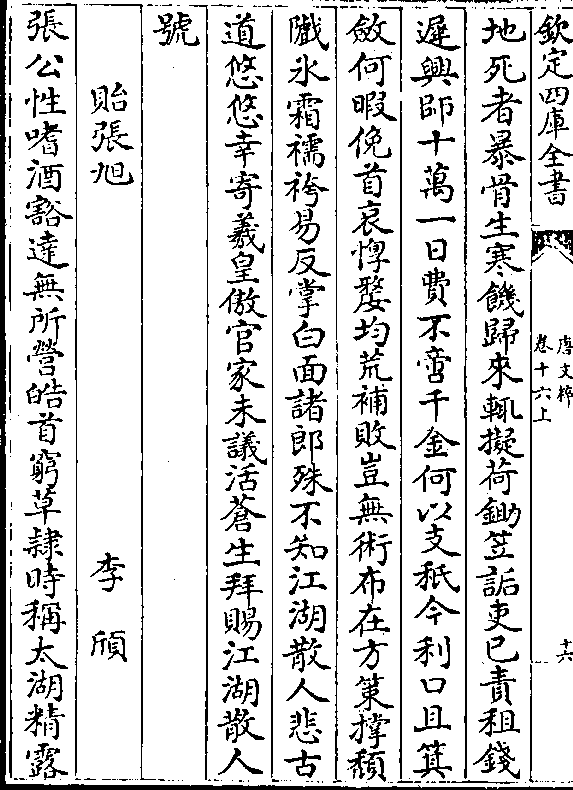 欽定四庫全書
唐文粹
卷十六上
十六
地死者暴骨生寒饑歸來輒擬荷鋤笠詬吏已責租錢
遲興師十萬一日費不啻千金何以支秪今利口且箕
斂何暇俛首哀惸嫠均荒補敗豈無術布在方策撐頽
隵氷霜襦袴易反掌白面諸郎殊不知江湖散人悲古
道悠悠幸寄羲皇傲官家未議活蒼生拜賜江湖散人
號
貽張旭
李頎
張公性嗜酒豁達無所營皓首窮草隷時稱太湖精露